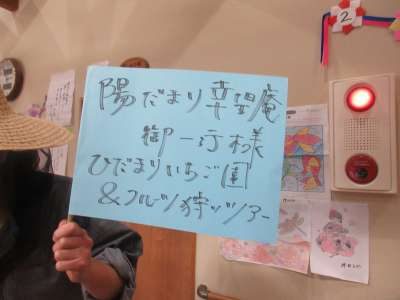 陽だまり幸望庵
御一行様
ひだまりいちご園
&フルーツ狩ッツアー
2